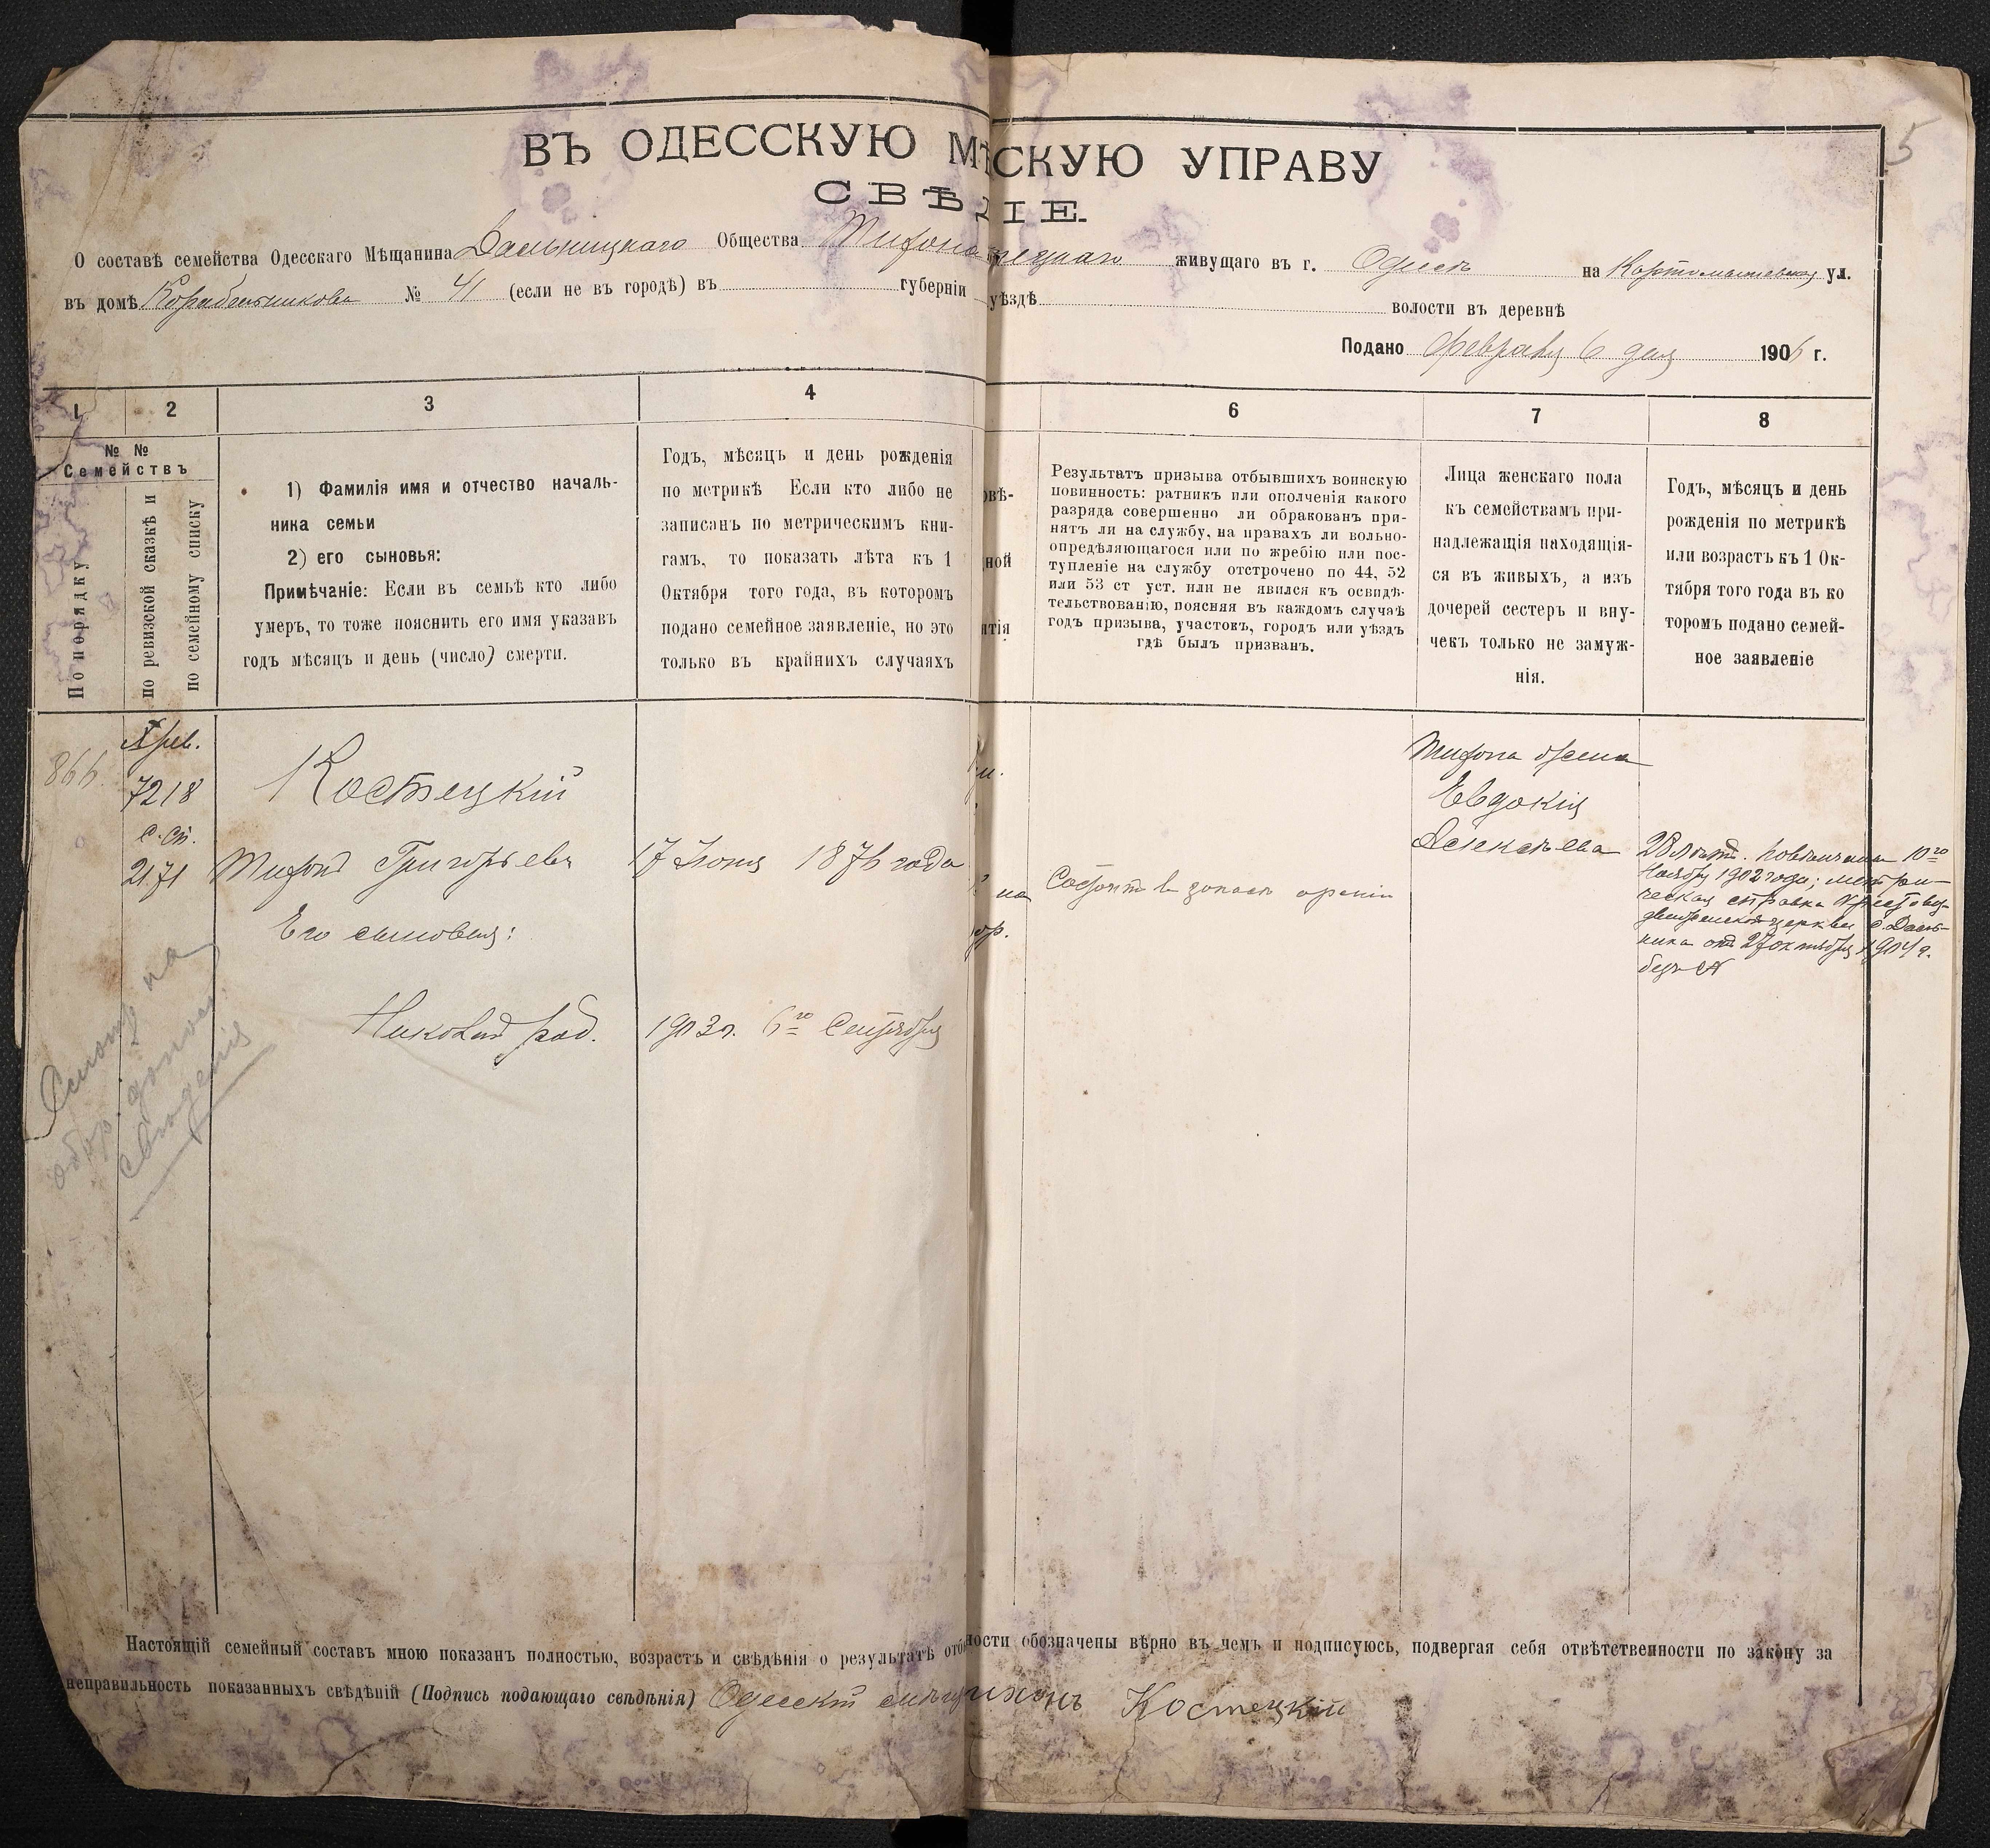 5
ВЪ ОДЕССКУЮ МѢ СКУЮ УПРАВУ
СВѢД ІЕ.
О составѣ семейства Одесскаго Мѣщанина Дальницкаго Общества Тихона живущаго въ г. Одессѣ на Картамышевской ул.
въ домѣ Корабельникова № 41 (если не въ городѣ) въ губерніи уѣздѣ волости въ деревнѣ
Подано Февраля 6 дня 1906 г.
1 2 3 4 6 7 8
№ №
Семействъ
По порядку
по ревизской сказкѣ и
по семейному списку
1) Фамилія имя и отчество началь-
ника семьи
2) его сыновья:
Примѣчаніе: Если въ семьѣ кто либо
умеръ, то тоже пояснить его имя указавъ
годъ мѣсяцъ и день (число) смерти.
Годъ, мѣсяцъ и день рожденія
по метрикѣ Если кто либо не
записанъ по метрическимъ кни-
гамъ, то показать лѣта къ 1
Октября того года, въ которомъ
подано семейное заявленіе, но это
только въ крайнихъ случаяхъ
овѣ-
ной
ятія
Результатъ призыва отбывшихъ воинскую
повинность: ратникъ или ополченія какого
разряда совершенно ли обракованъ при-
нятъ ли на службу, на правахъ ли вольно-
опредѣляющагося или по жребію или пос-
тупленіе на службу отстрочено по 44, 52
или 53 ст уст. или не явился къ освидѣ-
тельствованію, поясняя въ каждомъ случаѣ
годъ призыва, участокъ, городъ или уѣздъ
гдѣ былъ призванъ.
Лица женскаго пола
къ семействамъ при-
надлежащія находящія-
ся въ живыхъ, а изъ
дочерей сестеръ и вну-
чекъ только не замуж-
нія.
Годъ, мѣсяцъ и день
рожденія по метрикѣ
или возрастъ къ 1 Ок-
тября того года въ ко
торомъ подано семей-
ное заявленіе
866
X рев.
7218
с. сп.
2171
Костецкій
Тихонъ Григорьевъ
Его сыновья:
Николай род.
17 Іюня 1876 года
1903 г. 6го Сентября
на
Состоитъ въ запасѣ арміи
Тихона жена
Евдокія
Алексѣева
28 лѣтъ. повѣнчаны 10го
Ноября 1902 года; метри-
ческая справка Крестовоз-
движенской церкви с. Даль-
ника отъ 27 октября 1904 г.
безъ №
Настоящій семейный составъ мною показанъ полностью, возрастъ и свѣдѣнія о результатѣ отб ности обозначены вѣрно въ чемъ и подписуюсь, подвергая себя отвѣтственности по закону за
неправильность показанныхъ свѣдѣній (Подпись подающаго свѣдѣнія) Одесскій ихонъ Костецкій